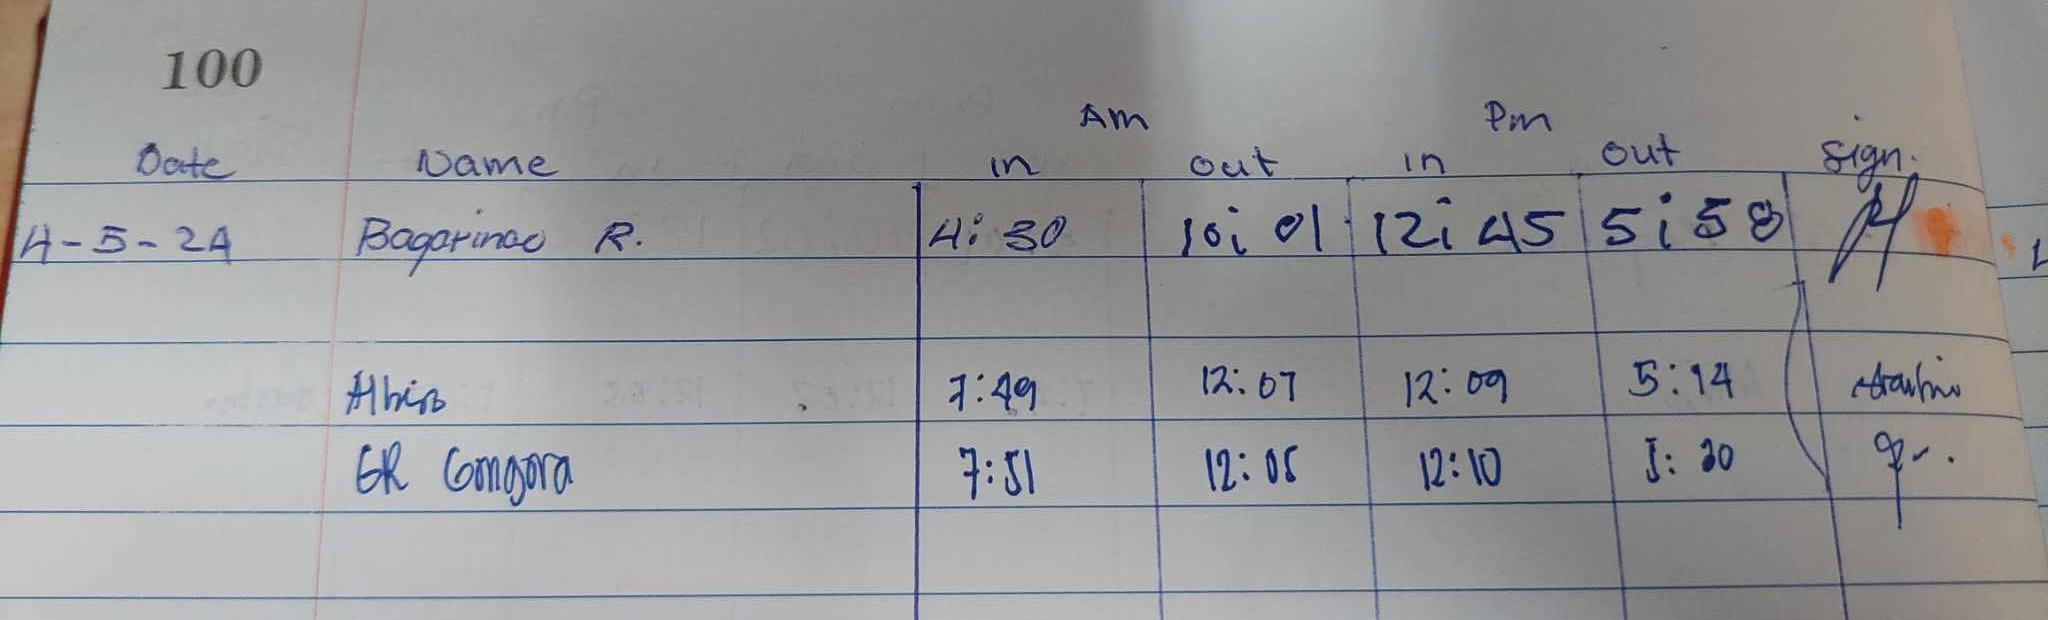 100
Am Pm
Date Name in out in out sign.
4-5-24 Bagarinao R. 4:30 10:01 12:45 5:58
Albin 7:49 12:07 12:09 5:14
GR Gongora 7:51 12:05 12:10 5:30